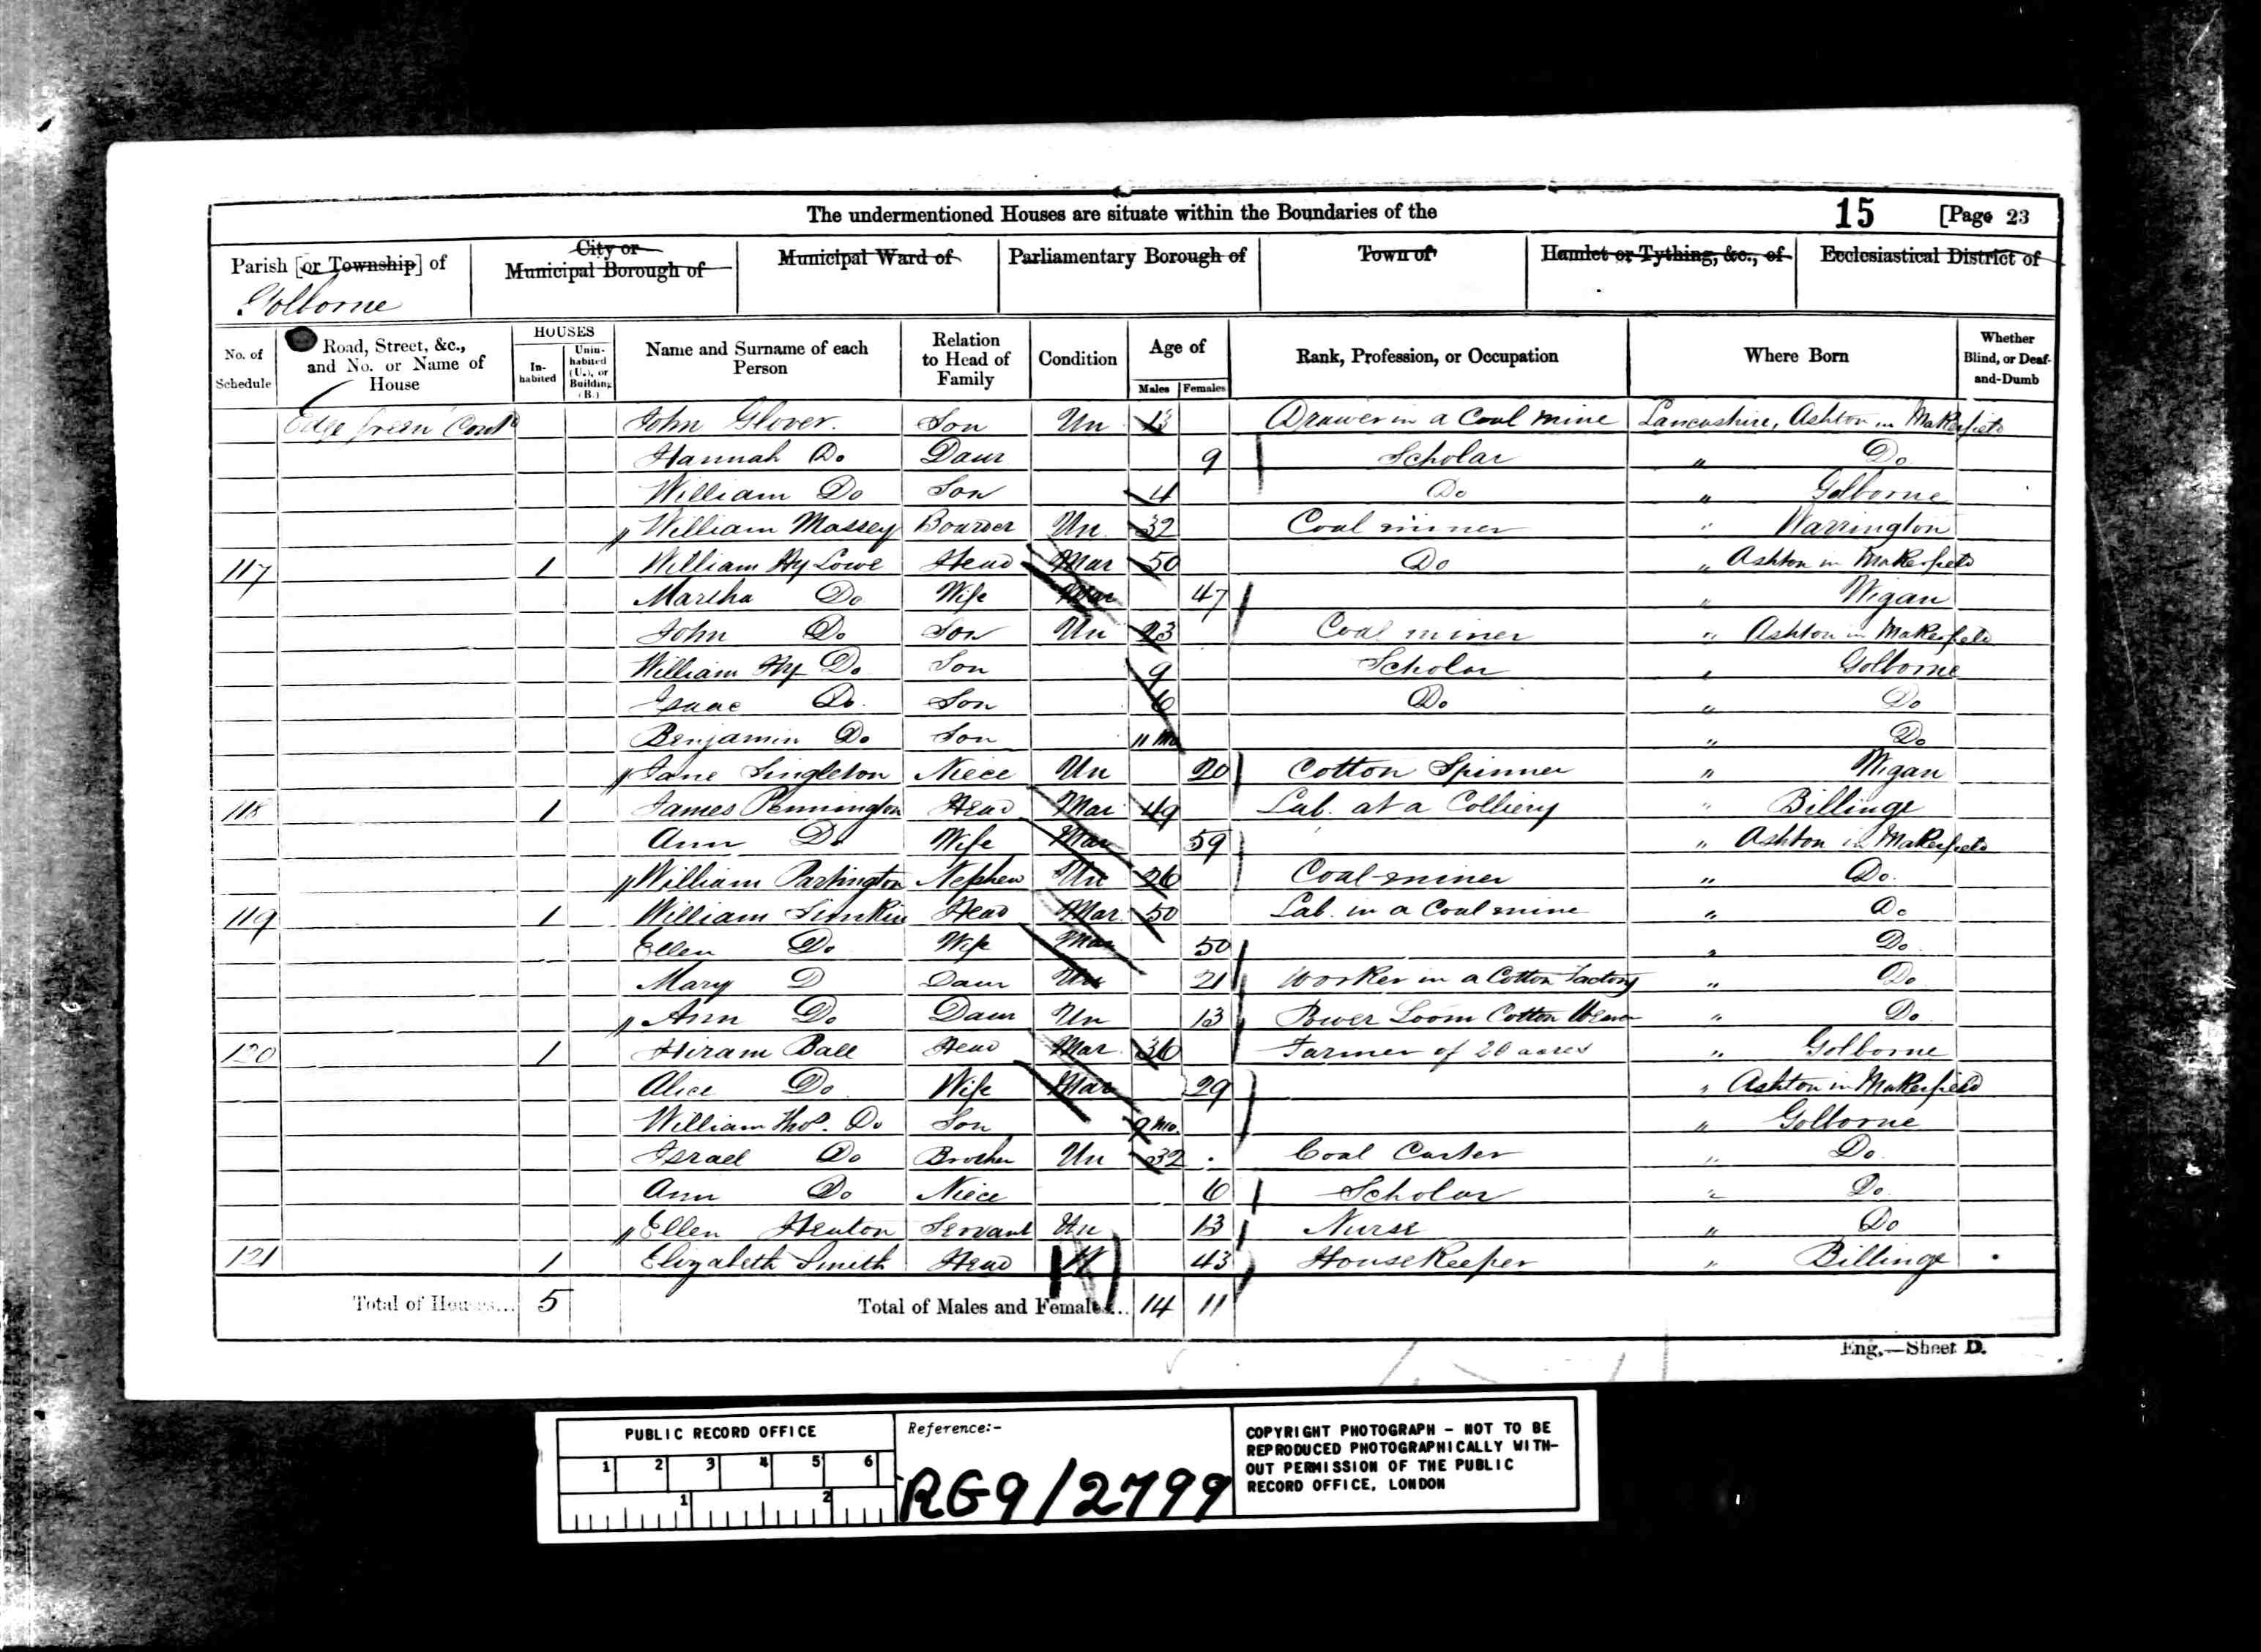 The undermentioned Houses are situate within the Boundaries of the 15 [Page 23
Parish [or Township] of Golborne
City or Municipal Borough of
Municipal Ward of
Parliamentary Borough of
Town of
Hamlet or Tything, &c., of
Ecclesiastical District of
No. of Schedule
Road, Street, &c., and No. or Name of House
HOUSES
In-habited
Unin-habited (U.), or Building (B.)
Name and Surname of each Person
Relation to Head of Family
Condition
Age of
Males Females
Rank, Profession, or Occupation
Where Born
Whether Blind, or Deaf-and-Dumb
Edge Green Contd John Glover. Son Un 13 Drawer in a Coal Mine Lancashire, Ashton in Makerfield
Hannah Do Daur 9 Scholar " Do
William Do Son 4 Do " Golborne
William Massey Boarder Un 32 Coal miner " Warrington
117 1 William Hy Lowe Head Mar 50 Do " Ashton in Makerfield
Martha Do Wife Mar 47 " Wigan
John Do Son Un 23 Coal miner " Ashton in Makerfield
William Hy Do Son 9 Scholar " Golborne
Isaac Do Son 6 Do " Do
Benjamin Do Son 11 Mo " Do
Jane Singleton Niece Un 20 Cotton Spinner " Wigan
118 1 James Pennington Head Mar 49 Lab. at a Colliery " Billinge
Ann Do Wife Mar 59 " Ashton in Makerfield
William Partington Nephew Un 26 Coal miner " Do
119 1 William Simkin Head Mar 50 Lab. in a Coal mine " Do
Ellen Do Wife Mar 50 " Do
Mary D Daur Un 21 Worker in a Cotton Factory " Do
Ann Do Daur Un 13 Power Loom Cotton Weaver " Do
120 1 Hiram Ball Head Mar 36 Farmer of 20 acres " Golborne
Alice Do Wife Mar 29 " Ashton in Makerfield
William Thos. Do Son 9 Mo. " Golborne
Israel Do Brother Un 32 Coal Carter " Do
Ann Do Niece 6 Scholar " Do
Ellen Heaton Servant Un 13 Nurse " Do
121 1 Elizabeth Smith Head W 43 HouseKeeper " Billinge
Total of Houses... 5 Total of Males and Females... 14 11
Eng.—Sheet D.
PUBLIC RECORD OFFICE
1 2 3 4 5 6
1 2
Reference:-
RG9/2799
COPYRIGHT PHOTOGRAPH - NOT TO BE
REPRODUCED PHOTOGRAPHICALLY WITH-
OUT PERMISSION OF THE PUBLIC
RECORD OFFICE, LONDON